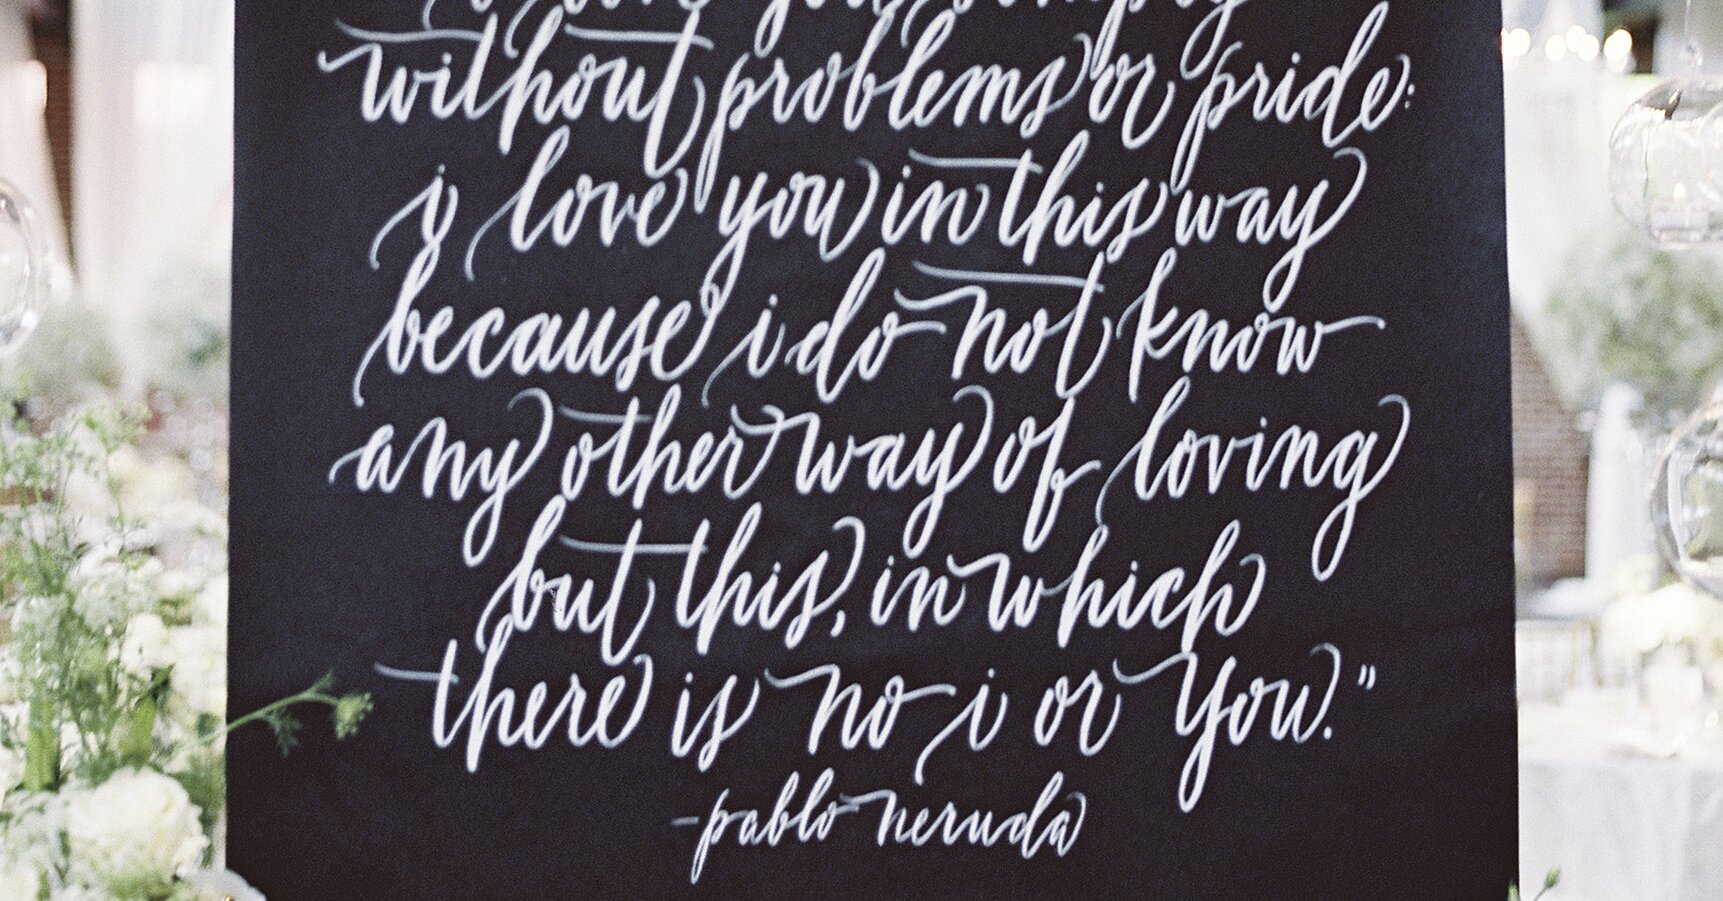 i love you simply
without problems or pride:
i love you in this way
because i do not know
any other way of loving
but this, in which
there is no i or you."
-pablo neruda